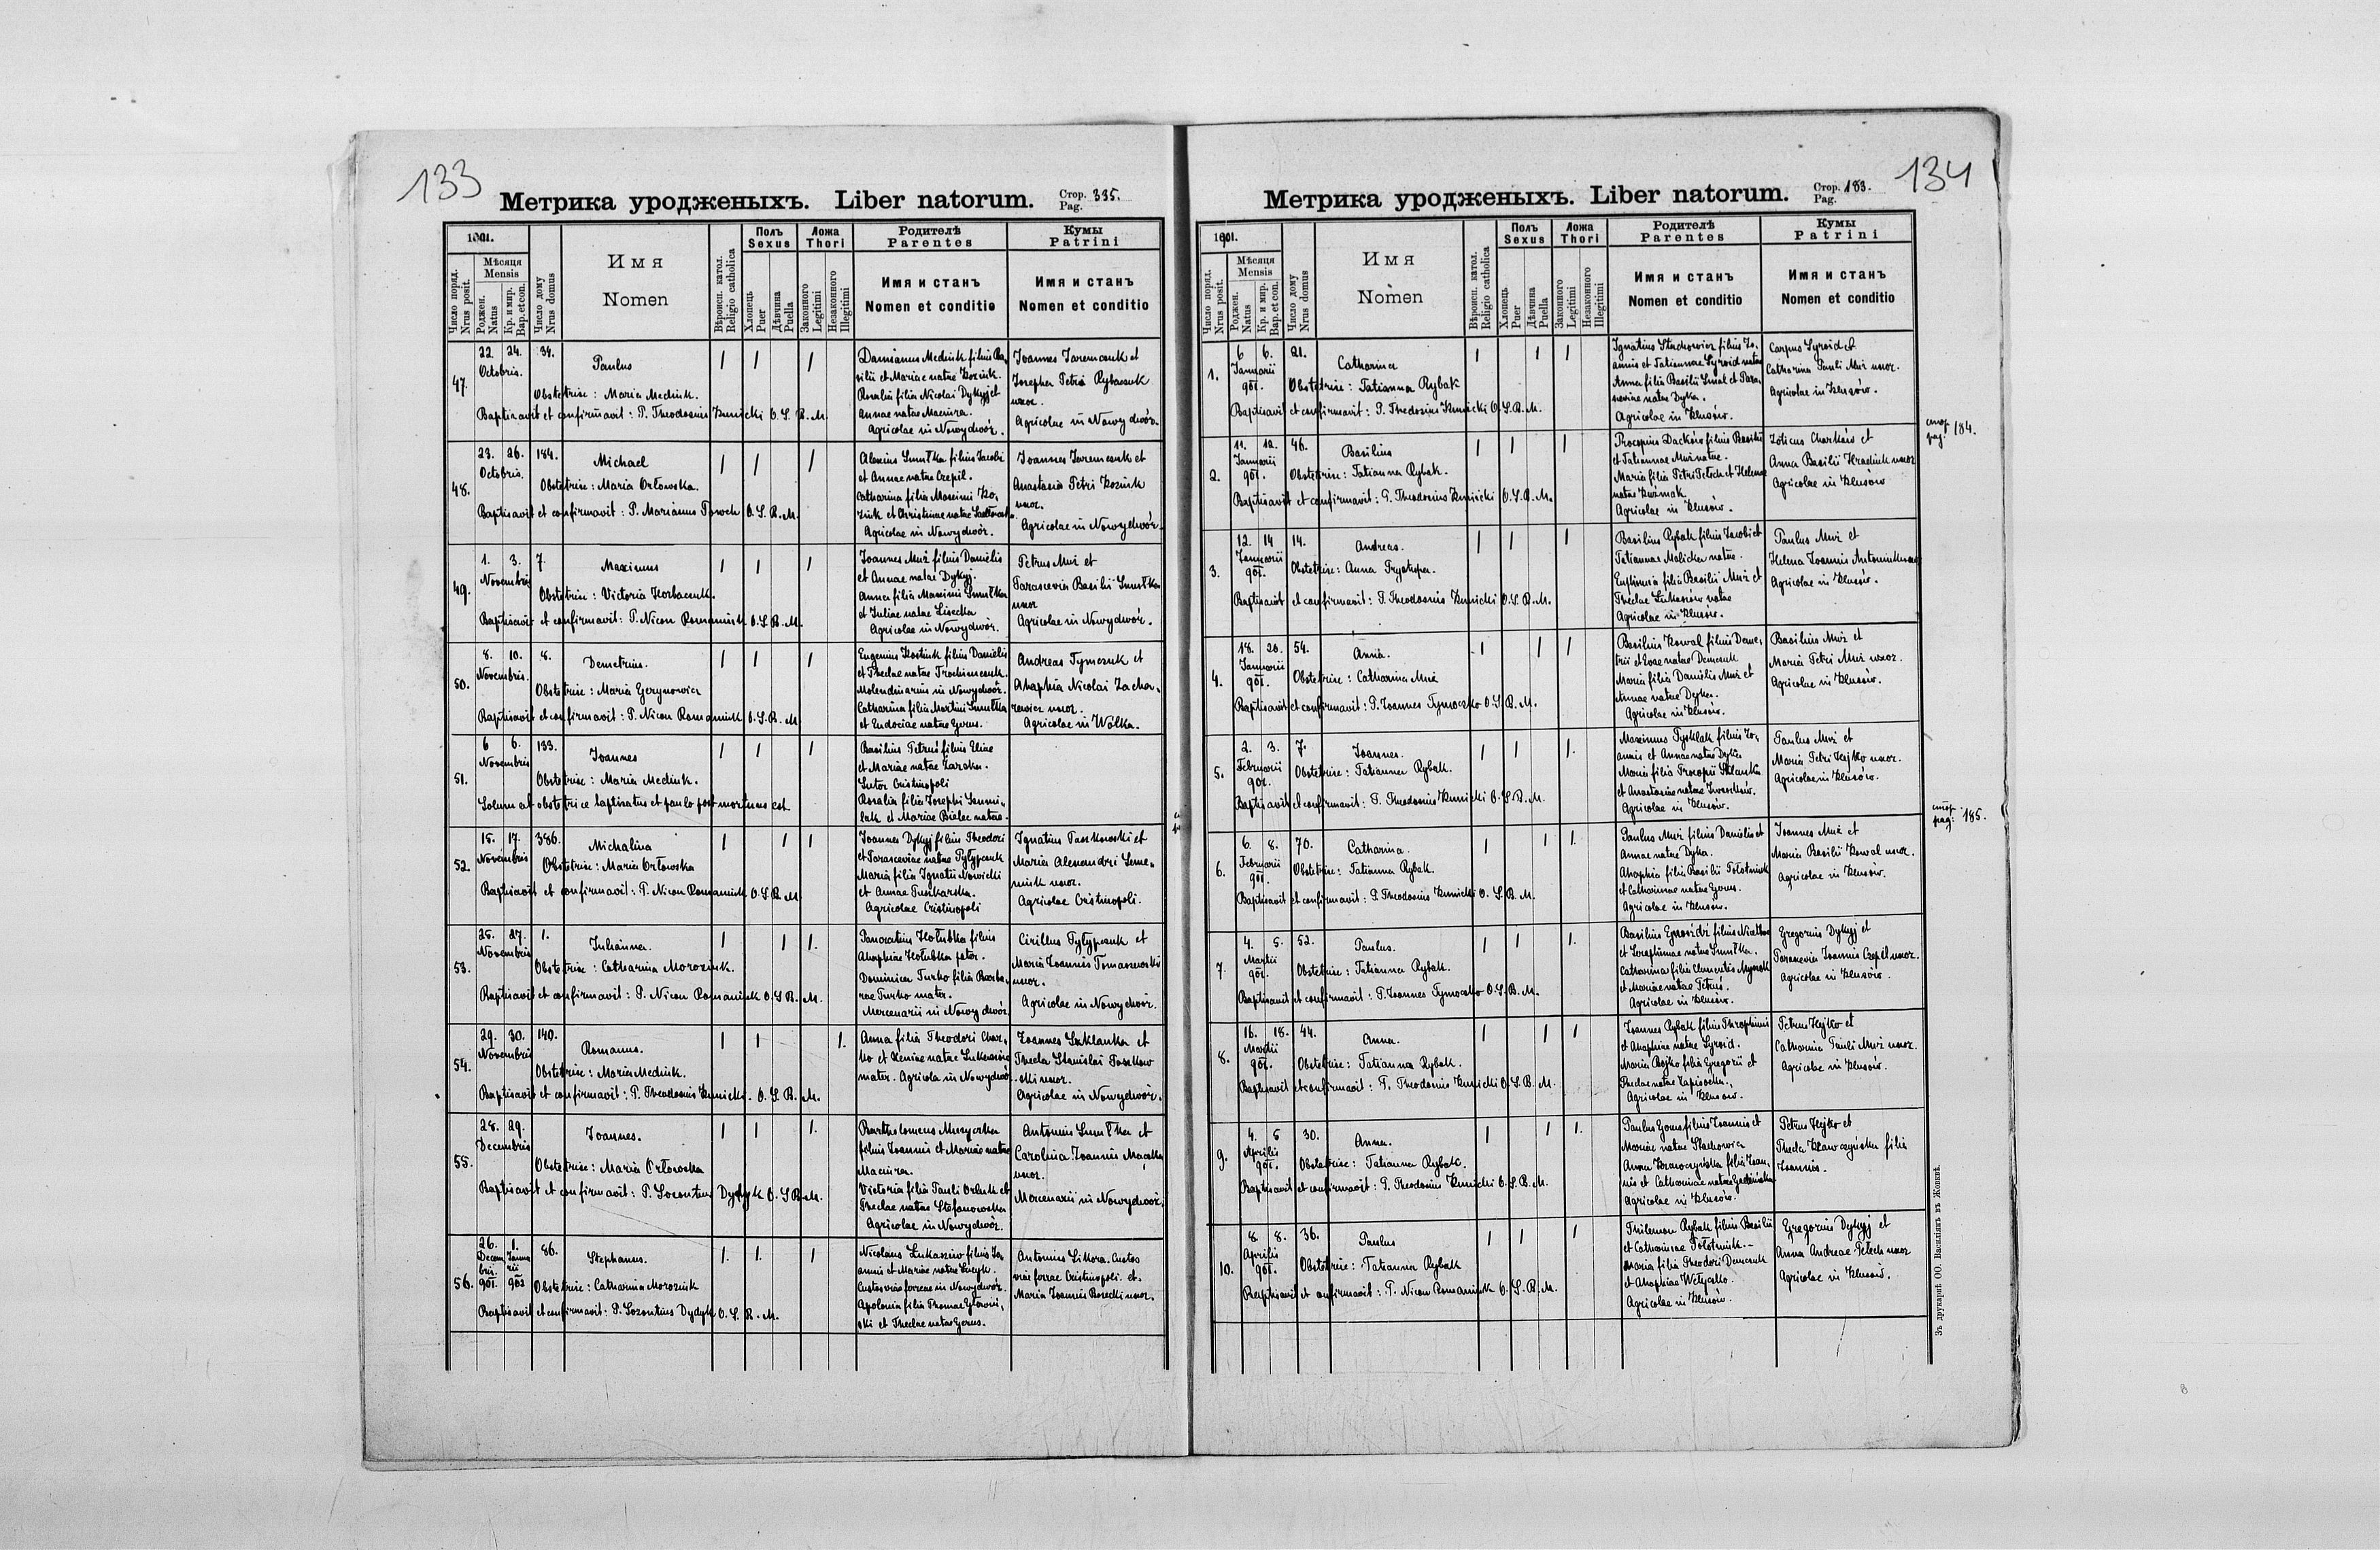 133
Метрика уродженыхъ. Liber natorum.
Стор. Pag. 395.
1901.
Число поряд. Nrus posit.
Мѣсяця Mensis
Роджен. Natus
Кр. и мир. Bap. et con.
Число дому Nrus domus
Имя Nomen
Вѣроисп. катол. Religio catholica
Полъ Sexus
Хлопець Puer
Дѣвчина Puella
Ложа Thori
Законного Legitimi
Незаконного Illegitimi
Родителѣ Parentes
Имя и станъ Nomen et conditio
Кумы Patrini
Имя и станъ Nomen et conditio
47. 22. 24. Octobris. 34. Paulus
Obstetrise: Maria Mediuk.
Baptisavit et confirmavit: P. Theodosius Kunicki O.S.B.M.
Damianus Mediuk filius Ba-
silii et Mariae natae Koziuk.
Rosalia filia Nicolai Dykyj et
Annae natae Maciura.
Agricolae in Nowydwór.
Joannes Jaremczuk et
Josepha Petri Rybaczuk
uxor.
Agricolae in Nowydwór.
48. 23. 26. Octobris. 184. Michael
Obstetrise: Maria Orłowska.
Baptisavit et confirmavit: P. Marianus O.S.B.M.
Alexius Smułka filius Jacobi
et Annae natae Czepil.
Catharina filia Maximi Ko-
ziuk et Christinae natae
Agricolae in Nowydwór.
Joannes Jaremczuk et
Anastasia Petri Koziuk
uxor.
Agricolae in Nowydwór.
49. 1. 3. Novembris 7. Maximus
Obstetrise: Victoria Horbaczuk.
Baptisavit et confirmavit: P. Nicon Romaniuk O.S.B.M.
Joannes Muż filius Danielis
et Annae natae Dykyj.
Anna filia Maximi Smułka
et Juliae natae Lisecka
Agricolae in Nowydwór.
Petrus Muż et
Parascevia Basilii Smułka
uxor
Agricolae in Nowydwór.
50. 8. 10. Novembris. 8. Demetrius.
Obstetrise: Maria Gerynowicz
Baptisavit et confirmavit: P. Nicon Romaniuk O.S.B.M.
Eugenius Kostiuk filius Danielis
et Theclae natae Trochimczuk.
Molendinarius in Nowydwór.
Catharina filia Martini Smułka
et Eudociae natae Gerus.
Andreas Tymczuk et
Ahaphia Nicolai Zacha-
rewicz uxor.
Agricolae in Wólka.
51. 6 6. Novembris 133. Joannes
Obstetrise: Maria Mediuk.
Solum ab obstetrice baptisatus et paulo post mortuus est
Basilius Petruś filius Eliae
et Mariae natae Zaraska.
Sutor Cristinopoli
Rosalia filia Josephi
et Mariae Bielec natae.
52. 15. 17. Novembris 386. Michalina
Obstetrise: Maria Orłowska
Baptisavit et confirmavit: P. Nicon Romaniuk O.S.B.M.
Joannes Dykyj filius Theodori
et Parasceviae natae Pyłypczuk
Maria filia Ignatii Nowicki
et Annae
Agricolae Cristinopoli
Ignatius Paszkowski et
Maria Alexandri Seme-
niuk uxor.
Agricolae Cristinopoli.
53. 25. 27. Novembris 1. Julianna.
Obstetrise: Catharina Moroziuk.
Baptisavit et confirmavit: P. Nicon Romaniuk O.S.B.M.
Pancratius Hołubka filius
Ahaphiae Hołubka pater.
Dominica Turko filia Barba-
rae Turko mater.
Mercenarii in Nowydwór
Cirillus Pyłypczuk et
Maria Joannis Tomaszewski
uxor.
Agricolae in Nowydwór.
54. 29. 30. Novembris 140. Romanus.
Obstetrise: Maria Mediuk.
Baptisavit et confirmavit: P. Theodosius Kunicki. O.S.B.M.
Anna filia Theodori
et Xeniae natae
mater. Agricola in Nowydwór
Joannes Szklanka et
Thecla Stanislai Paszkow-
ski uxor.
Agricolae in Nowydwór.
55. 28. 29. Decembris Joannes.
Obstetrise: Maria Orłowska
Baptisavit et confirmavit: P. Sozontius Dydyk O.S.B.M.
Bartholomeus Muryczka
filius Joannis et Mariae natae
Maciura.
Victoria filia Pauli Orluk et
Theclae natae Stefanowska
Agricolae in Nowydwór.
Antonius Smułka et
Carolina Joannis
uxor.
Mercenarii in Nowydwór.
56. 26. Decembris. 901. 1. Januarii 902 86. Stephanus.
Obstetrise: Catharina Moroziuk
Baptisavit et confirmavit: P. Sozontius Dydyk O.S.B.M.
Nicolaus Łukasziw filius Jo-
annis et Mariae natae
Custos viae ferreae in Nowydwór.
Apolonia filia Thomae
et Theclae natae Gerus.
Antonius Sikora. Custos
viae ferrae Cristinopoli. et.
Maria Joannis uxor.
134
Метрика уродженыхъ. Liber natorum.
Стор. Pag. 183.
1901.
Число поряд. Nrus posit.
Мѣсяця Mensis
Роджен. Natus
Кр. и мир. Bap. et con.
Число дому Nrus domus
Имя Nomen
Вѣроисп. катол. Religio catholica
Полъ Sexus
Хлопець Puer
Дѣвчина Puella
Ложа Thori
Законного Legitimi
Незаконного Illegitimi
Родителѣ Parentes
Имя и станъ Nomen et conditio
Кумы Patrini
Имя и станъ Nomen et conditio
1. 6 6. Januarii 901. 21. Catharina
Obstetrise: Tatianna Rybak
Baptisavit et confirmavit: P. Theodosius Kunicki O.S.B.M.
Ignatius Stachowicz filius Jo-
annis et Tatiannae Syroid natae
Anna filia Basilii et Para-
sceviae natae Dyka.
Agricolae in Klusów.
Carpus Syroid et
Catharina Pauli Muż uxor.
Agricolae in Klusów.
2. 11. 12. Januarii 901. 46. Basilius
Obstetrise: Tatianna Rybak.
Baptisavit et confirmavit: P. Theodosius Kunicki O.S.B.M.
Procopius Dacków filius Basilii
et Tatiannae Muż natae.
Maria filia Petri Pelech et Helenae
natae Kuźmak
Agricolae in Klusów.
Zoticus Charków et
Anna Basilii Hradiuk uxor
Agricolae in Klusów
стор pag. 184.
3. 12. 14 Januarii 901. 14. Andreas.
Obstetrise: Anna Prystupa.
Baptisavit et confirmavit: P. Theodosius Kunicki O.S.B.M.
Basilius Rybak filius Jacobi et
Tatiannae Malicka natae.
Euphimia filia Basilii Muż et
Theclae natae
Agricolae in Klusów.
Paulus Muż et
Helena Joannis Antoniuk uxor
Agricolae in Klusów.
4. 18. 20. Januarii 901. 54. Anna.
Obstetrise: Catharina Muż
Baptisavit et confirmavit: P. Joannes Tymoczko O.S.B.M.
Basilius Kowal filius Deme-
trii et Evae natae Demczuk
Maria filia Danielis Muż et
Annae natae Dyka.
Agricolae in Klusów.
Basilius Muż et
Maria Petri Muż uxor.
Agricolae in Klusów.
5. 2. 3. Februarii 901. 7. Joannes.
Obstetrise: Tatianna Rybak.
Baptisavit et confirmavit: P. Theodosius Kunicki O.S.B.M.
Maximus filius Jo-
annis et Annae natae Dyka.
Maria filia Procopii Szklanka
et Anastasiae natae
Agricolae in Klusów.
Paulus Muż et
Maria Petri Hejko uxor.
Agricolae in Klusów.
стор pag: 185.
6. 6. 8. Februarii 901. 70. Catharina.
Obstetrise: Tatianna Rybak.
Baptisavit et confirmavit: P. Theodosius Kunicki O.S.B.M.
Paulus Muż filius Danielis et
Annae natae Dyka.
Ahaphia filia Basilii Połotniuk
et Catharinae natae Gerus.
Agricolae in Klusów.
Joannes Muż et
Maria Basilii Kowal uxor.
Agricolae in Klusów.
7. 4. 5. Martii 901. 52. Paulus.
Obstetrise: Tatianna Rybak.
Baptisavit et confirmavit: P. Joannes Tymoczko O.S.B.M.
Basilius filius
et Seraphinae natae Smułka.
Catharina filia Clementis
et Mariae natae Petruś.
Agricolae in Klusów.
Gregorius Dykyj et
Parascevia Joannis Czepil uxor.
Agricolae in Klusów.
8. 16. 18. Martii 901. 44. Anna.
Obstetrise: Tatianna Rybak.
Baptisavit et confirmavit: P. Theodosius Kunicki O.S.B.M.
Joannes Rybak filius
et Ahaphiae natae Syroid.
Maria Bojko filia Gregorii et
Theclae natae
Agricolae in Klusów.
Petrus Hejko et
Catharina Pauli Muż uxor.
Agricolae in Klusów.
9. 4. 5 Aprilis 901. 30. Anna.
Obstetrise: Tatianna Rybak.
Baptisavit et confirmavit: P. Theodosius Kunicki O.S.B.M.
Paulus Gerus filius Joannis et
Mariae natae Stachowicz
Anna Krawczyńska filia Joan-
nis et Catharinae natae
Agricolae in Klusów.
Petrus Hejko et
Thecla Krawczyńska filia
Joannis.
10. 8 8. Aprilis 901. 36. Paulus
Obstetrise: Tatianna Rybak
Baptisavit et confirmavit: P. Nicon Romaniuk O.S.B.M.
Philemon Rybak filius Basilii
et Catharinae Połotniuk.-
Maria filia Theodori Demczuk
et Ahaphiae Wełyczko.
Agricolae in Klusów.
Gregorius Dykyj et
Anna Andreae Pelech uxor
Agricolae in Klusów.
Зъ друкарнѣ ОО. Василіянъ въ Жовквѣ.